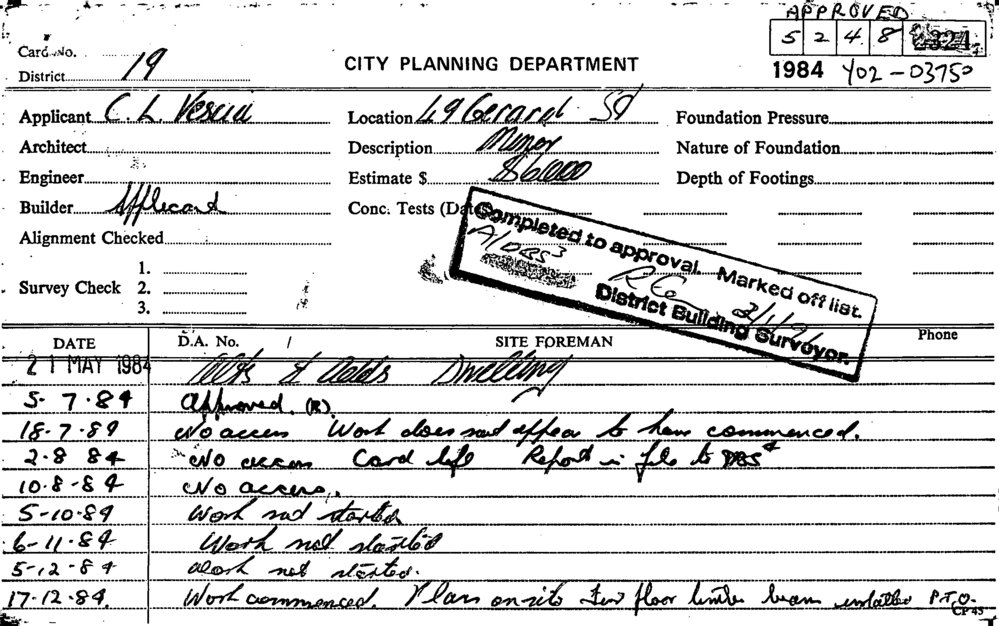 APPROVED
5 2 4 8
Card No.
District 19
CITY PLANNING DEPARTMENT
1984 Y02-03750
Applicant C. L. Vescui
Location 49 Gerard St
Foundation Pressure
Architect
Description Minor
Nature of Foundation
Engineer
Estimate $ $6000
Depth of Footings
Builder Applicant
Conc. Tests
Alignment Checked
Completed to approval. Marked off list.
A/DBS3
District Building Surveyor.
Survey Check
1.
2.
3.
DATE D.A. No. / SITE FOREMAN Phone
21 MAY 1984 Alts & Adds Dwelling
5-7-84 Approved. (R).
18-7-84 No access Work does not appear to have commenced.
2-8 84 No access Card left Report in file to DBS4
10-8-84 No access.
5-10-84 Work not started
6-11-84 Work not started
5-12-84 Work not started.
17-12-84. Work commenced. Plans on site floor timber beam installed P.T.O.
CP 45